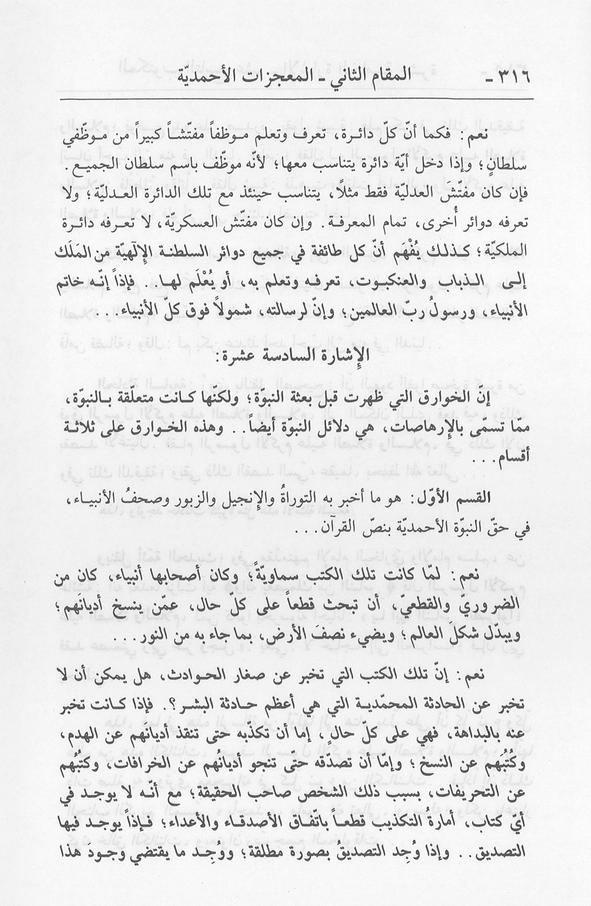 ٣١٦ - المقام الثاني - المعجزات الأحمديّة
نعم: فكما أنّ كلّ دائـرة، تعرف وتعلم مـوظفاً مفتّشـاً كبيراً من مـوظّفي
سلطانٍ؛ وإذا دخل أيّة دائرة يتناسب معها؛ لأنّه موظّف باسم سلطان الجميع.
فإن كان مفتّش العدليّة فقط مثلًا، يتناسب حينئذ مع تلك الدائرة العدليّة؛ ولا
تعرفه دوائر أُخرى، تمام المعرفـة. وإن كان مفتّش العسكريّة، لا تعـرفه دائـرة
الملكيّة؛ كـذلـك يُفْهَم أنّ كل طائفة في جميع دوائر السلطنـة الإلٓهيّة من المَلَك
إلـى الـذباب والعنكبوت، تعرفـه وتعلم به، أو يُعْلَم لهـا.. فإذاً إنّـه خاتم
الأنبياء، ورسولُ ربّ العالمين؛ وإنّ لرسالته، شمولاً فوق كلّ الأنبياء...
الإشارة السادسة عشرة:
إنّ الخوارق التي ظهرت قبل بعثة النبوّة؛ ولكنّها كانت متعلّقة بـالنبوّة،
ممّا تسمّى بالإرهاصات، هي دلائل النبوّة أيضاً.. وهذه الخوارق على ثلاثـة
أقسام...
القسم الأوّل: هو ما أخبر به التوراةُ والإنجيل والزبور وصحفُ الأنبيـاء،
في حقّ النبوّة الأحمديّة بنصّ القرآن...
نعم: لمّا كانت تلك الكتب سماويّةً؛ وكان أصحابها أنبياء، كان من
الضروريّ والقطعيّ، أن تبحث قطعاً على كلّ حال، عمّن ينسخ أديانَهم؛
ويبدّل شكلَ العالم؛ ويضيء نصفَ الأرض، بما جاء به من النور...
نعم: إنّ تلك الكتب التي تخبر عن صغار الحوادث، هل يمكن أن لا
تخبر عن الحادثة المحمّديـة التي هي أعظم حادثة البشـر؟. فإذا كـانت تخبر
عنه بالبداهة، فهي على كلّ حالٍ، إما أن تكذّبه حتى تنقذ أديانَهم عن الهدم،
وكُتُبُهم عن النسخ؛ وإمّا أن تصدّقه حتّى تنجو أديانُهم عن الخرافات، وكتُبُهم
عن التحريفات، بسبب ذلك الشخص صاحب الحقيقة؛ مع أنّـه لا يوجـد في
أيّ كتاب، أمارةُ التكذيب قطعـاً باتّفـاق الأصـدقـاء والأعداء؛ فـإذاً يوجـد فيها
التصديق.. وإذا وُجِد التصديقُ بصورة مطلقة؛ ووُجِـد ما يقتضي وجـودَ هذا